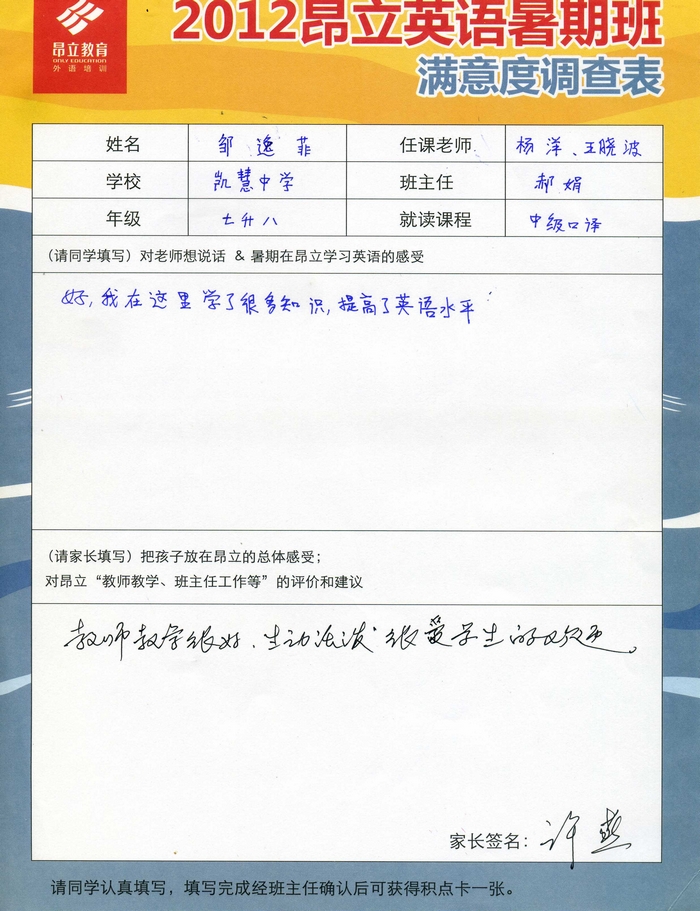 昂立教育
ONLY EDUCATION
外语培训
2012昂立英语暑期班
满意度调查表
姓名 邹逸菲 任课老师 杨洋、王晓波
学校 凯慧中学 班主任 郝娟
年级 七升八 就读课程 中级口译
（请同学填写）对老师想说话 & 暑期在昂立学习英语的感受
好,我在这里学了很多知识,提高了英语水平
（请家长填写）把孩子放在昂立的总体感受；
对昂立“教师教学、班主任工作等”的评价和建议
教师教学很好、生动活泼 很受学生的欢迎。
家长签名：许燕
请同学认真填写，填写完成经班主任确认后可获得积点卡一张。